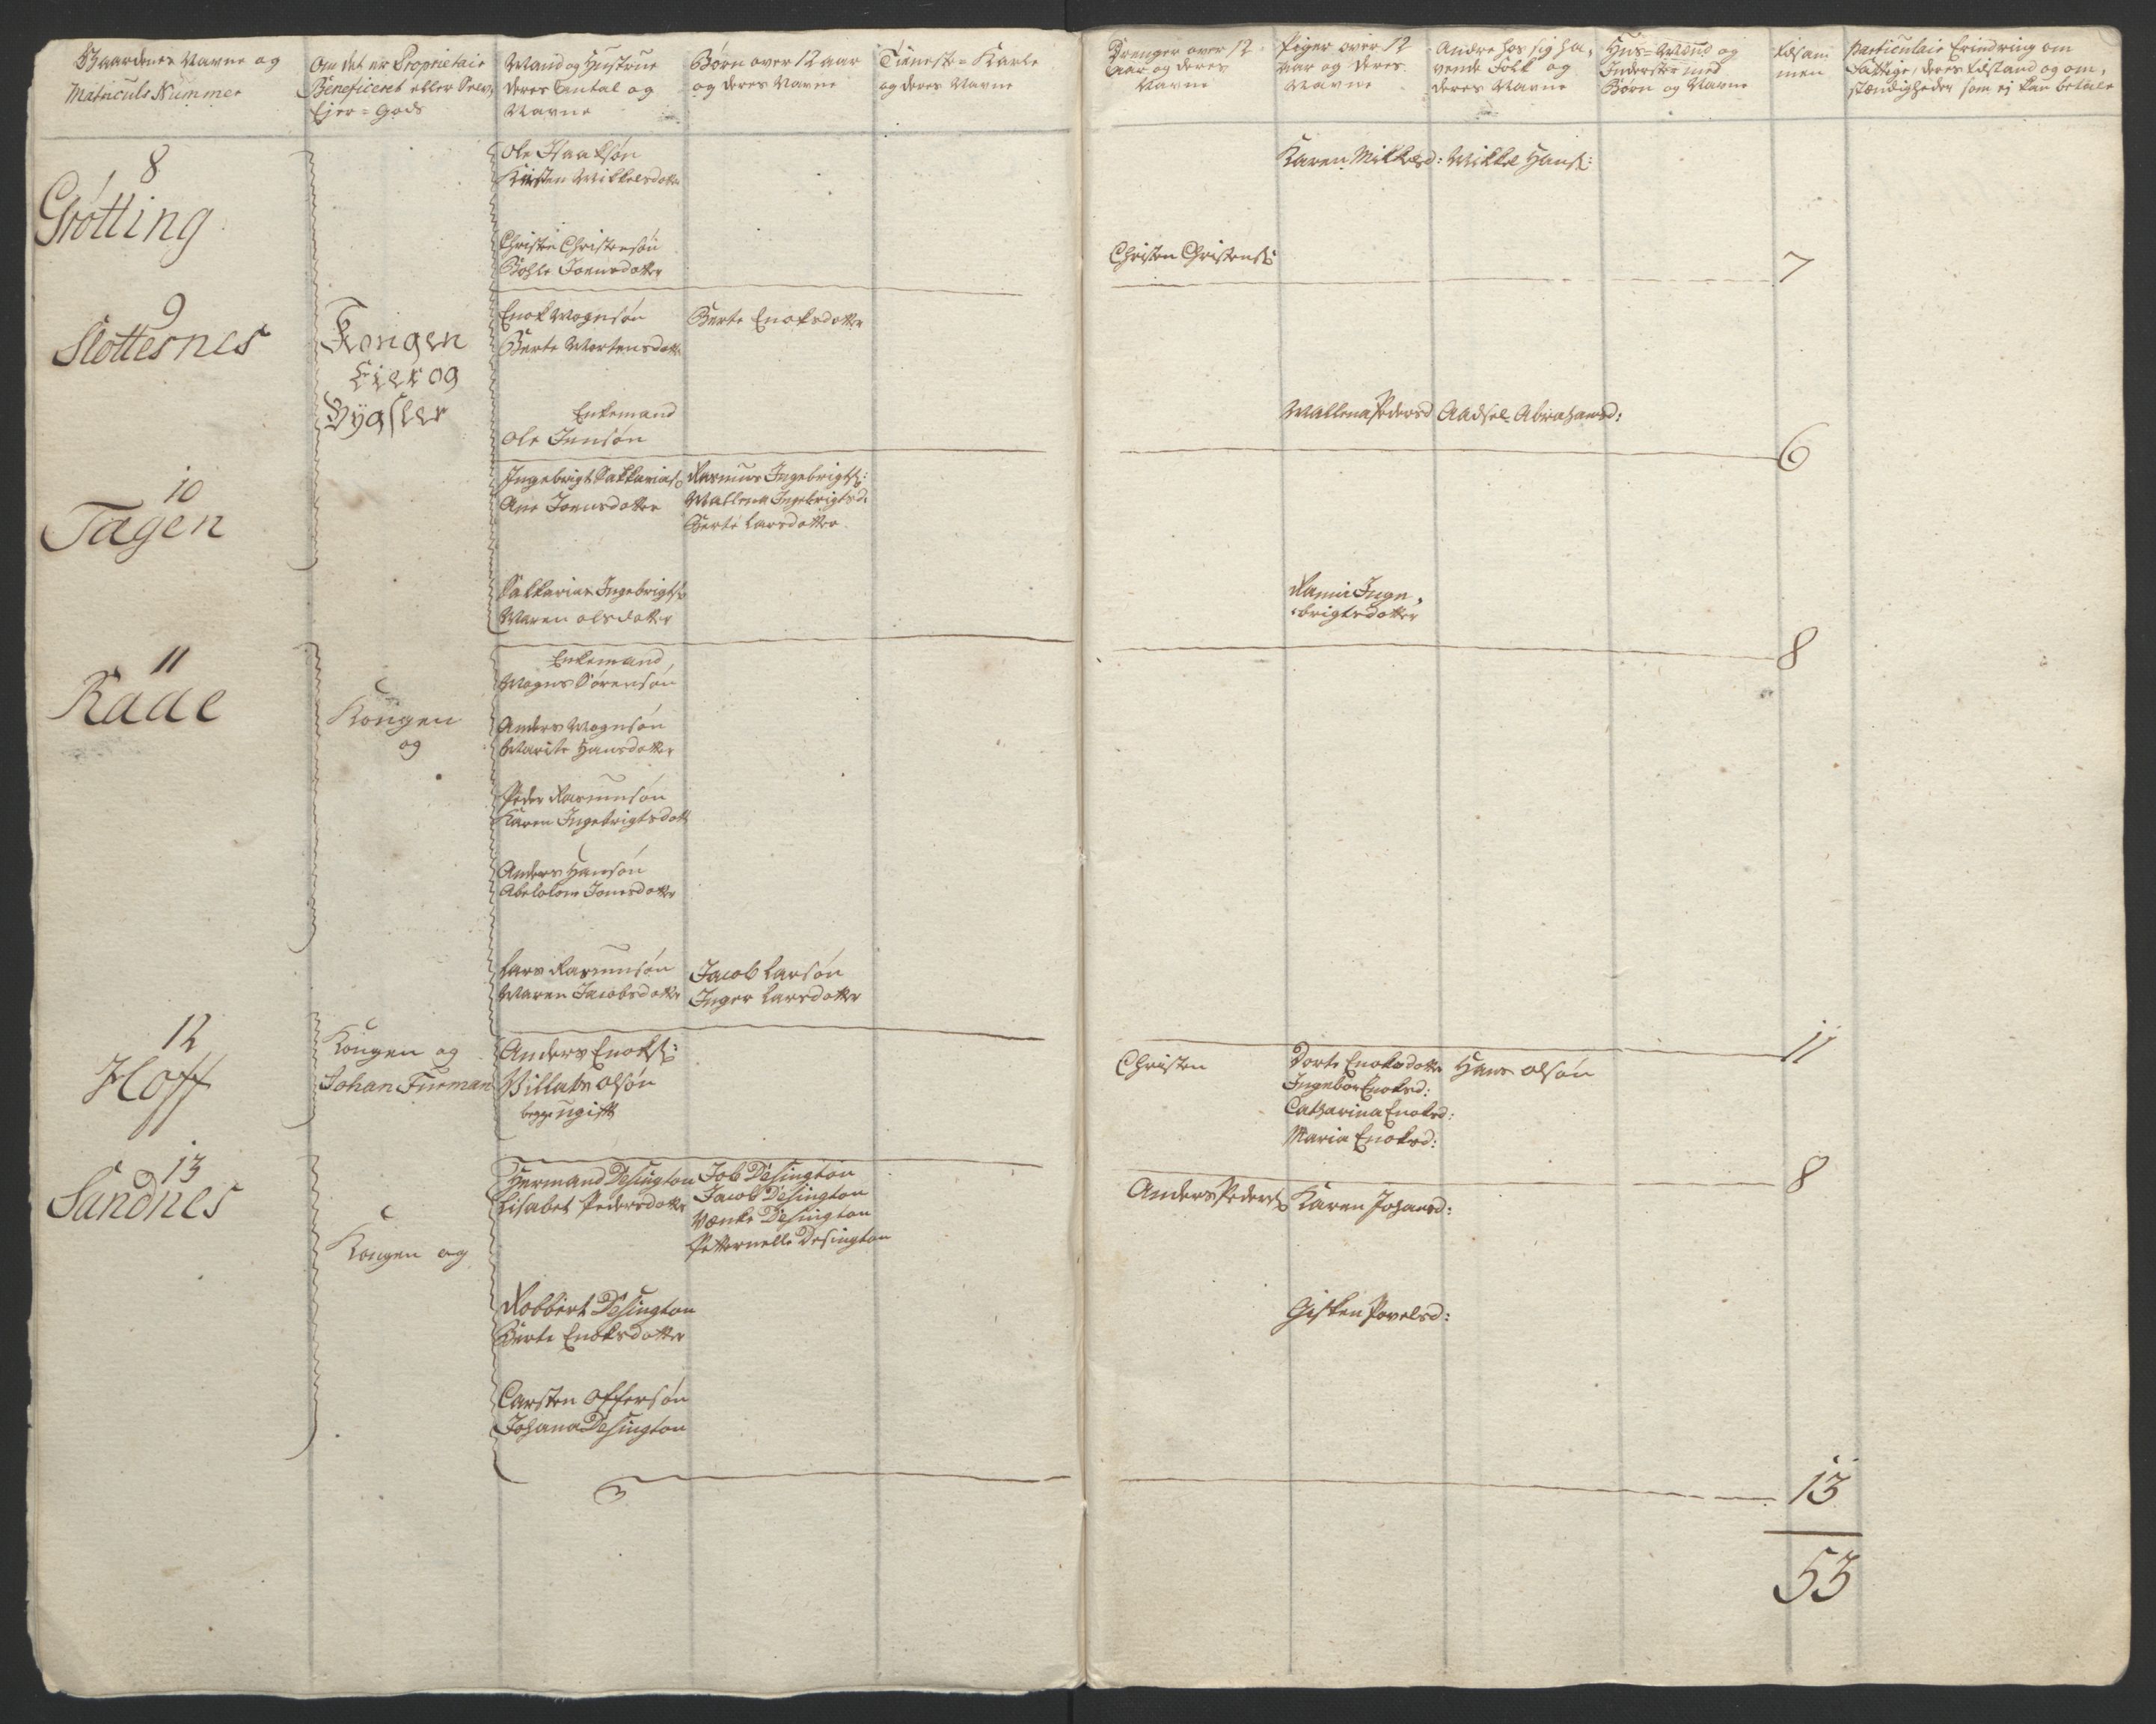 Gaardenes Navne og
Matriculs Nummer
Om det er Proprietaie
Beneficeret eller Selv
Ejer-Gods
Mand og Hustrue
deres Antal og
Navne
Børn over 12 aar
og deres Navne
Tieneste-Karle
og deres Navne
Drenger over 12
Aar og deres
Navne
Piger over 12
aar og deres
Navne
Andre hos sig ha-
vende Folk og
deres Navne
Huus-Mænd og
Inderster med
Børn og Navne
tilsam
men
Particulaie Erindring om
Fattige, deres tilstand og om-
stændigheder som ej kan betale
8
Grøtting
Ole Isaaksøn
Kirsten Mikkelsdotter
Karen Mikkelsd: Mikkel Hans:
Christen Christensøn
Bohle Joensdotter
Christen Christens:
7
9
Slottesnes
Kongen
Eier og
Bygsler
Enok Mognsøn
Berte Mortensdatt
Berte Enoksdotter
Enkemand
Ole Jensøn
Mallena Pedersd
Aadsel Abrahamsd:
6
10
Tagen
Ingebrigt Sakkarias
Ane Joensdotter
Rasmus Ingebrigts:
Mallena Ingebrigtsd:
Berte Larsdotter
Sakkarias Ingebrigts
Maren Olsdotter
Inge-
brigtsdotter
8
11
Raae
Kongen
og
Enkemand
Mogns Sørensøn
Anders Mognsøn
Marite Hansdotter
Peder Rasmusøn
Karen Ingebrigtsdott
Anders Hansøn
Abelolone Jonesdotter
Lars Rasmusøn
Maren Jacobsdotter
Jacob Larsøn
Inger Larsdotter
11
12
Hoff
Kongen og
Johan Furman
Anders Enoks:
Villabs Olsøn
begge ugift
Christen
Dorte Enoksdotter
Ingebor Enoksd:
Catharina Enoksd:
Maria Enoksd:
Hans Olsøn
8
13
Sandnes
Kongen og
Hermand Desington
Lisabet Pedersdotter
Job Desington
Jacob Desington
Wenke Desington
Petternelle Desington
Anders Peders
Karen Johansd:
Robbert Desington
Berte Enoksdotter
Gisken Povelsd:
Carsten Offersøn
Johana Desington
13
53